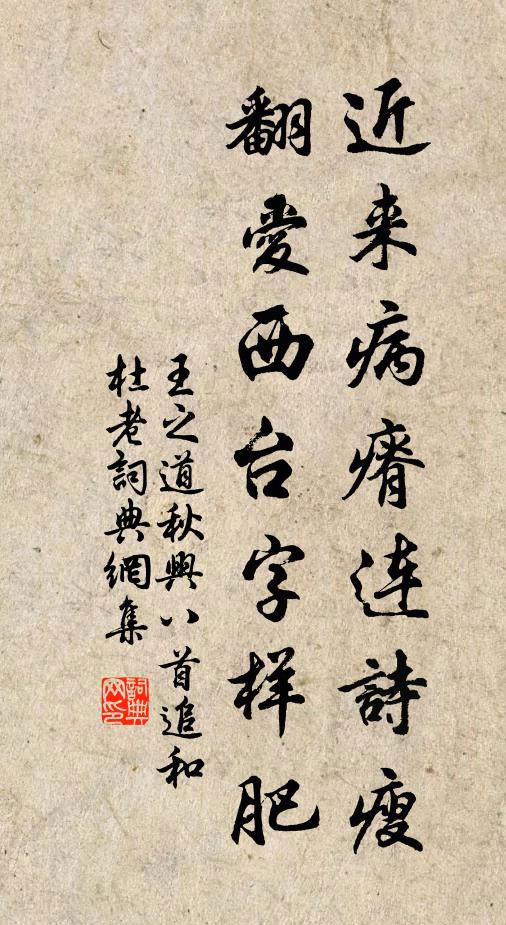 近来病瘠连詩瘦
翻愛西台字样肥
王之道秋興八首追和
杜老詞典網集
詞典网印